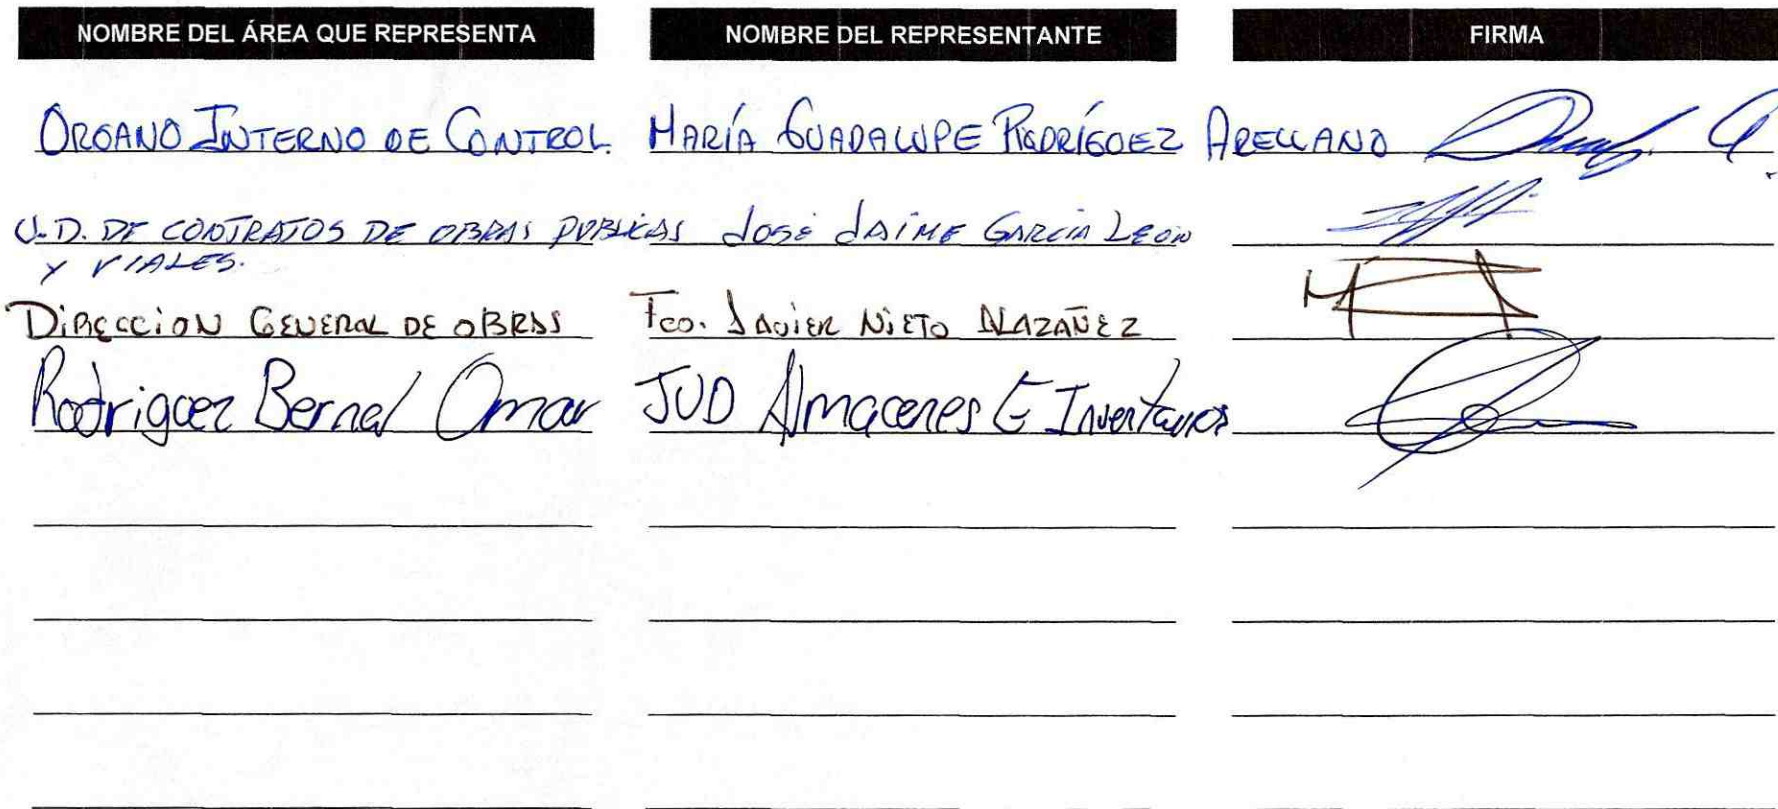 NOMBRE DEL ÁREA QUE REPRESENTA NOMBRE DEL REPRESENTANTE FIRMA
ORGANO INTERNO DE CONTROL. MARÍA GUADALUPE RODRÍGUEZ ARELLANO
U.D. DE CONTRATOS DE OBRAS PUBLICAS JOSÉ JAIME GARCIA LEON
Y VIALES.
DIRECCION GENERAL DE OBRAS Fco. JAVIER NIETO
Rodriguez Bernal Omar JUD Almacenes E Inventarios